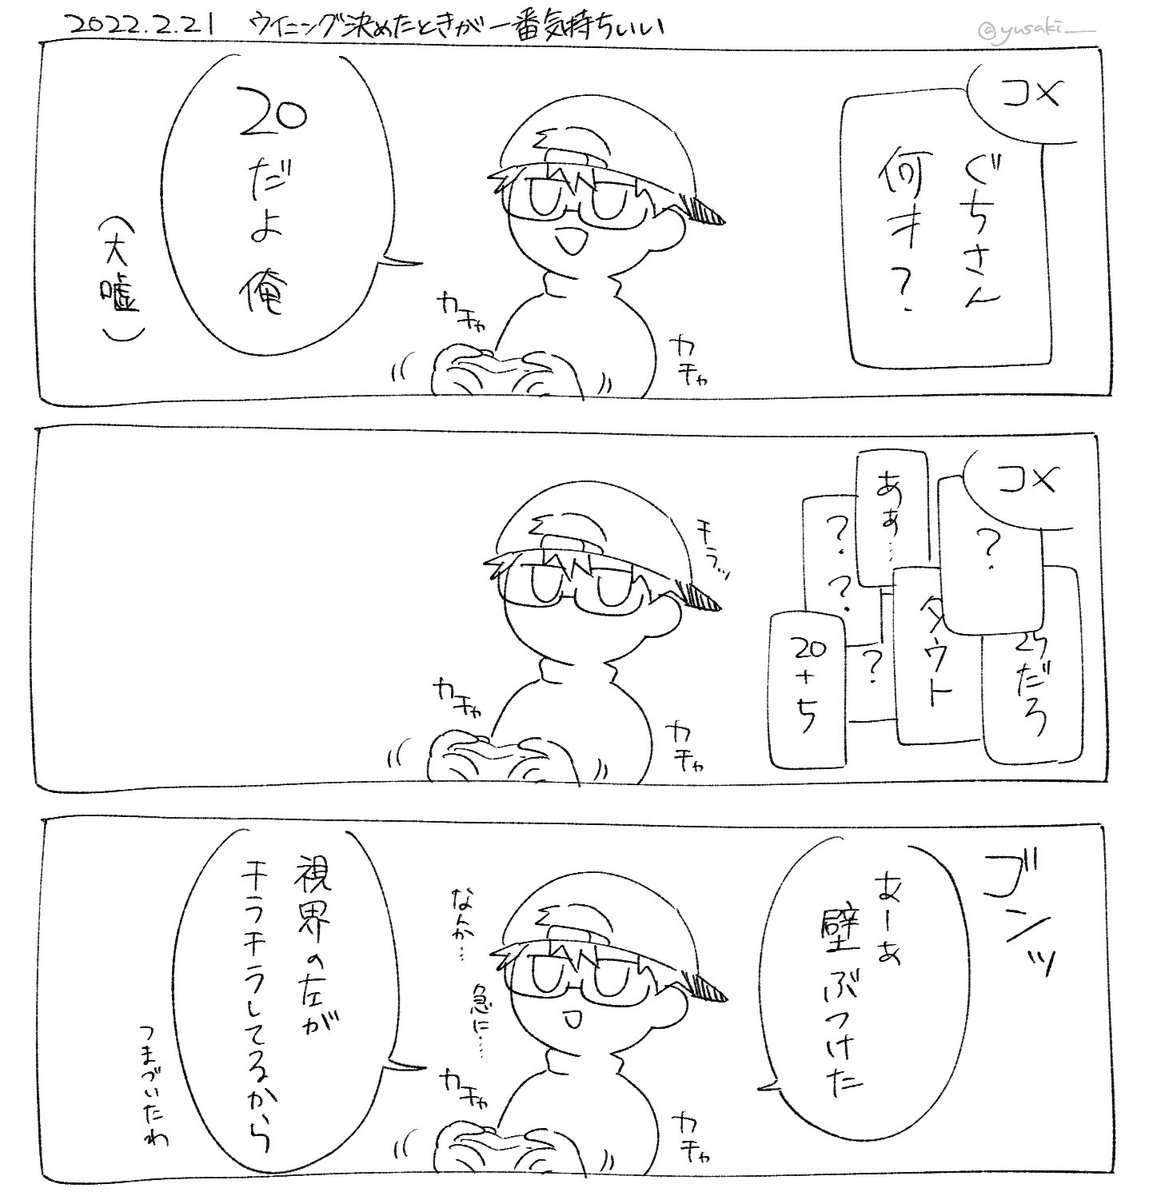 2022.2.21 ウイニング決めたときが一番気持ちいい
@yusaki__
コメ
ぐちさん
何才?
20だよ俺
(大嘘)
カチャ
カチャ
コメ
?
25だろ
タウト
ああ…
??
?
20+5
チラッ
カチャ
カチャ
ゴンッ
あーあ
壁ぶつけた
なんか…
急に…
視界の左が
チラチラしてるから
つまづいたわ
カチャ
カチャ